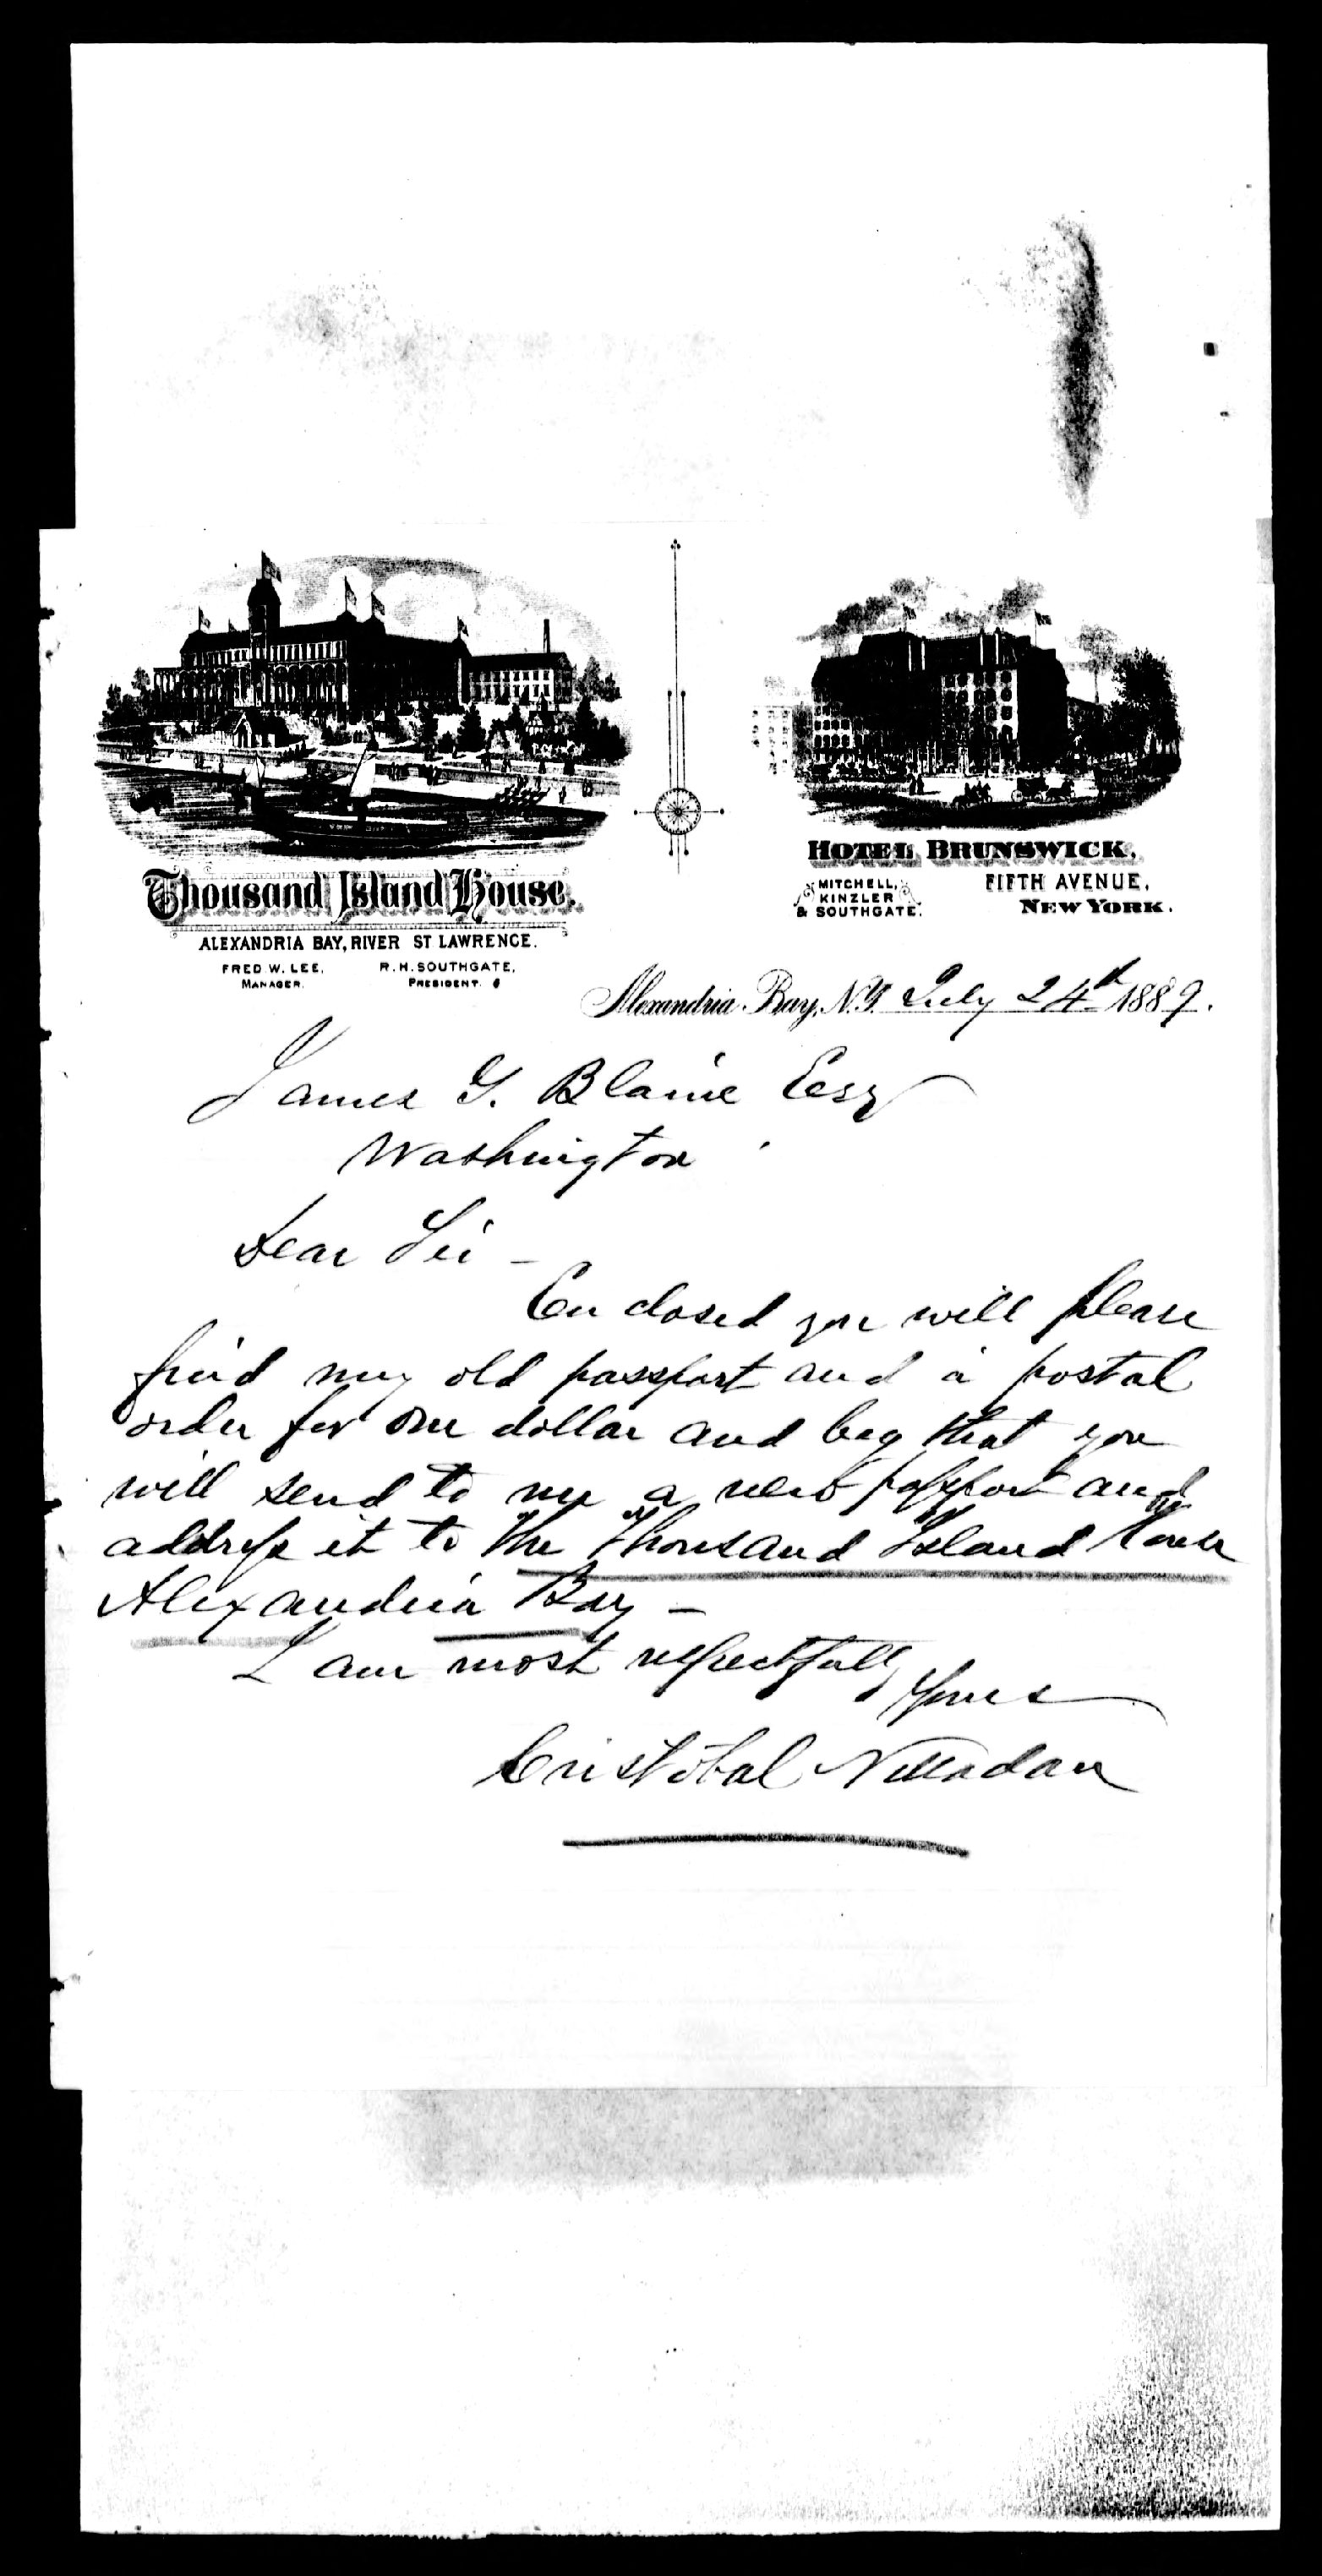 Thousand Island House.
ALEXANDRIA BAY, RIVER ST LAWRENCE.
FRED W. LEE, R. H. SOUTHGATE,
MANAGER. PRESIDENT.
HOTEL BRUNSWICK,
MITCHELL, KINZLER & SOUTHGATE. FIFTH AVENUE,
NEW YORK.
Alexandria Bay, N.Y. July 24th 1889.
James G. Blaine Esq
Washington
Dear Sir -
Enclosed you will please
find my old passport and a postal
order for one dollar and beg that you
will send to me a new passport and
address it to the Thousand Island House
Alexandria Bay -
I am most respectfully
Yours
Cristobal